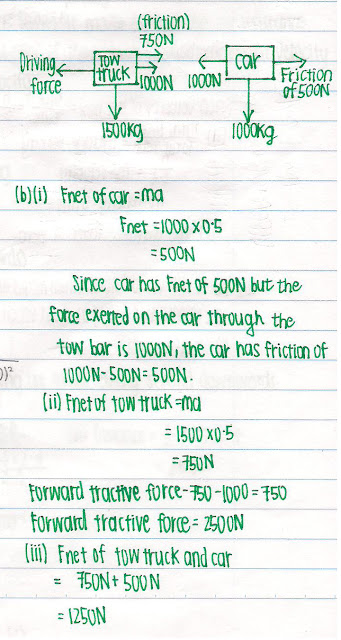 (friction)
750N
Driving force
TOW truck
1000N
1500kg
car
1000N
Friction of 500N
1000kg
(b)(i) Fnet of car = ma
Fnet = 1000 x 0.5
= 500N
Since car has Fnet of 500N but the
force exerted on the car through the
tow bar is 1000N, the car has friction of
1000N-500N= 500N.
)²
(ii) Fnet of tow truck =ma
= 1500 x0.5
= 750N
Forward tractive force-750-1000 = 750
Forward tractive force = 2500N
(iii) Fnet of tow truck and car
= 750N+ 500N
= 1250N